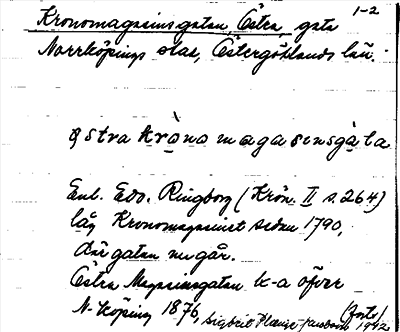 1-2
Kronomagasinsgatan, Östra, gata
Norrköpings stad, Östergötlands län.
östra kròno magasinsgàta
Enl. Edv. Ringborg (Krön. II s. 264)
låg Kronomagasinet sedan 1790,
där gatan nu går.
Östra Magasinsgatan k-a öfver
N-köping 1876, Sigbrit Plænge Jacobson
(forts) 1942